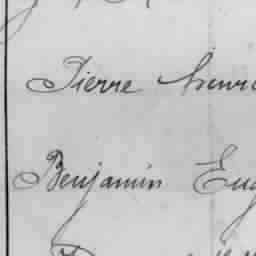 Pierre henri
Benjamin Eug